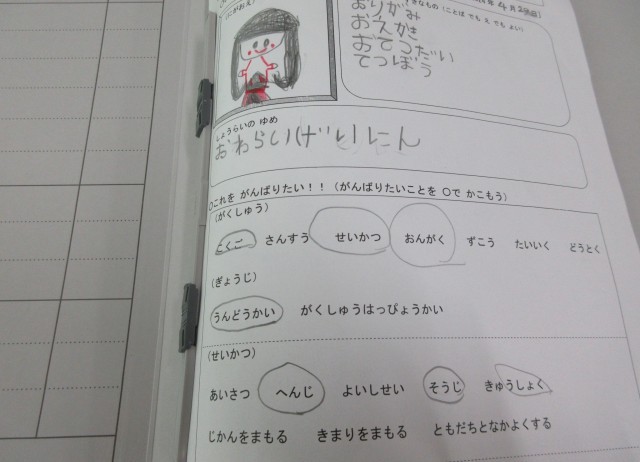 (にがおえ)
きなもの (ことば でも え でも よい)
おりがみ
おえかき
おてつだい
てつぼう
しょうらいの ゆめ
おわらいげいにん
○これを がんばりたい！！ (がんばりたいことを ○で かこもう)
(がくしゅう)
こくご さんすう せいかつ おんがく ずこう たいいく どうとく
(ぎょうじ)
うんどうかい がくしゅうはっぴょうかい
(せいかつ)
あいさつ へんじ よいしせい そうじ きゅうしょく
じかんをまもる きまりをまもる ともだちとなかよくする